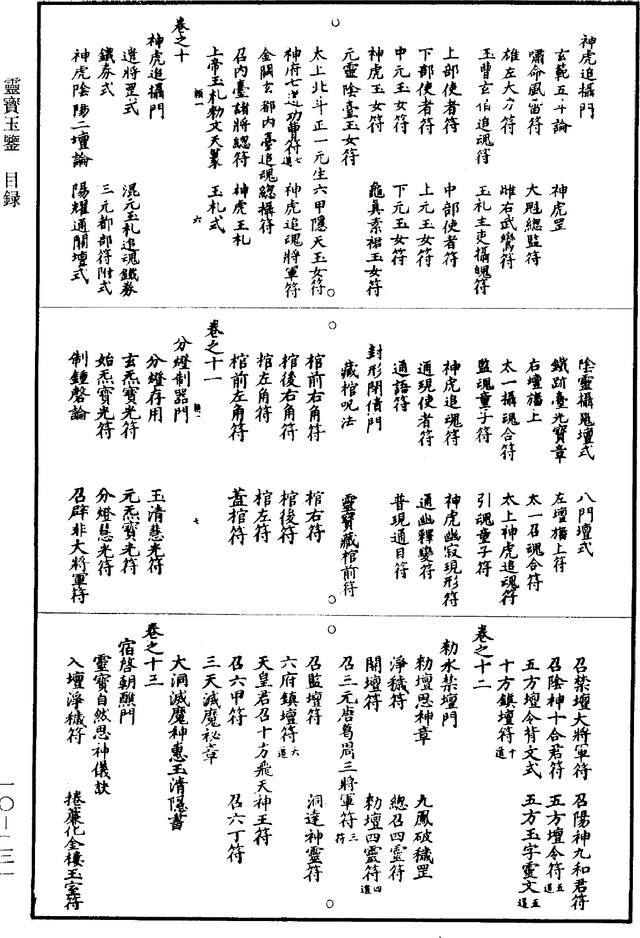 靈寶玉鑒　目録
神虎追攝門
玄範五斗論　神虎罡
嘯命風雷符　大魁總監符
雄左大力符　雌右武鸞符
玉曹玄伯追魂符　玉札主吏攝魄符
上部使者符　中部使者符
下部使者符　上元玉女符
中元玉女符　下元玉女符
神虎玉女符　龜真素裙玉女符
元靈陰臺玉女符
太上北斗正一元生六甲隱天玉女符
神府七逆功曹符七道　神虎追魂將軍符
金闕玄都內臺追魂總攝符
召內臺諸將總符　神虎玉札
上帝玉札勑文天篆　玉札式
卷之十
神虎追攝門
遣將罡式　混元玉札追魂鐵券
鐵券式　三元都部符附式
神虎陰陽二壇論　陽耀通關壇式
陰靈攝鬼壇式　八門壇式
鐵跡臺光寶章　左壇牓上符
右壇牓上　太一召魂合符
太一攝魂合符　太上神虎追魂符
監魂童子符　引魂童子符
神虎追魂符　神虎幽寂現形符
通現使者符　通幽釋變符
通語符　普現通目符
封形閉債門
藏棺呪法　靈寶藏棺前符
棺前右角符　棺右符
棺後右角符　棺後符
棺左角符　棺左符
棺前左角符　蓋棺符
卷之十一
分燈制器門
分燈存用　玉清慧光符
玄炁寶光符　元炁寶光符
始炁寶光符　分燈慧光符
制鍾磬論　召辟非大將軍符
召禁壇大將軍符　召陽神九和君符
召陰神十合君符　五方壇令符五道
五方壇令背文式　五方玉字靈文五道
十方鎮壇符十道
卷之十二
勑水禁壇門
勑壇思神章　九鳳破穢罡
淨穢符　總召四靈符
開壇符　勑壇四靈符四道
召三元唐葛周三將軍符三符
召監壇符　洞達神靈符
六府鎮壇符六道
天皇君召十方飛天神王符
召六甲符　召六丁符
三天滅魔祕章
大洞滅魔神惠玉清隱書
卷之十三
宿啓朝醮門
靈寶自然思神儀訣
入壇淨穢符　捲簾化金樓玉室符